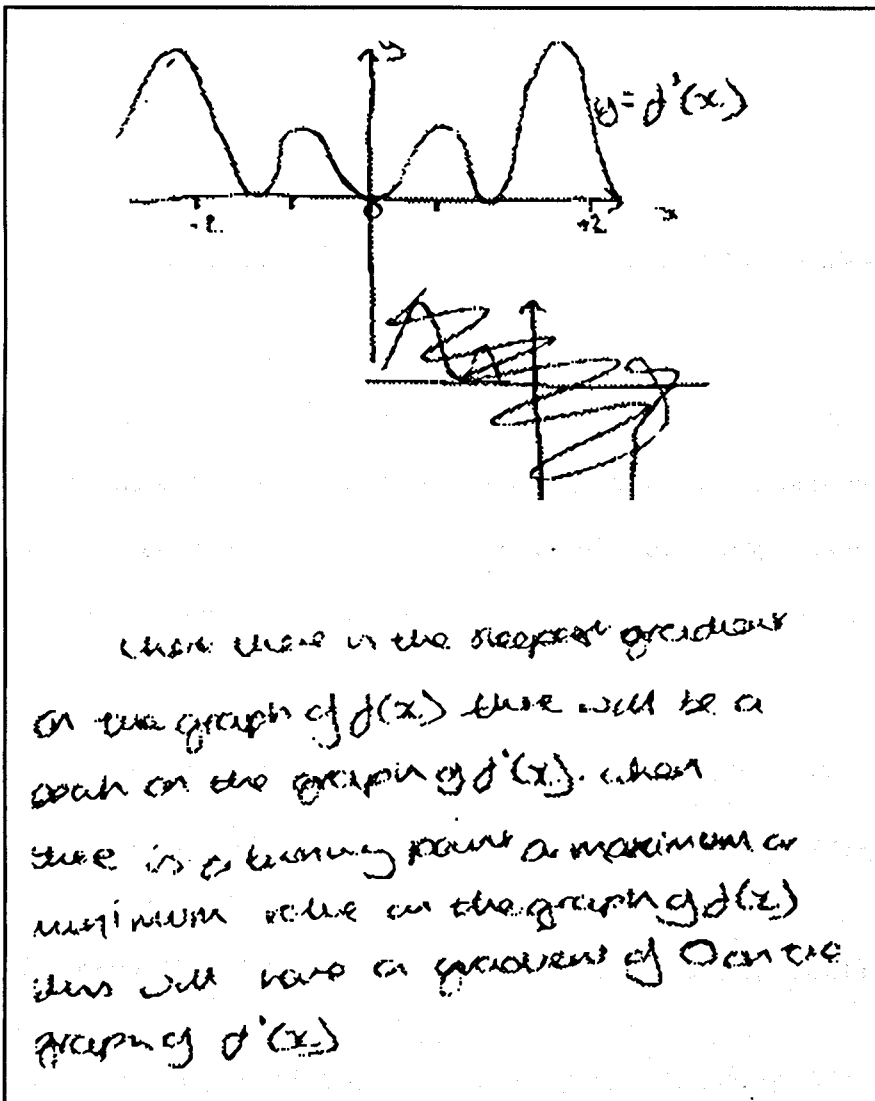 y
y = f'(x)
-2 0 +2 x
when there is the steepest gradient
on the graph of f(x) there will be a
peak on the graph of f'(x). when
there is a turning point a maximum or
minimum value on the graph of f(x)
this will have a gradient of 0 on the
graph of f'(x)